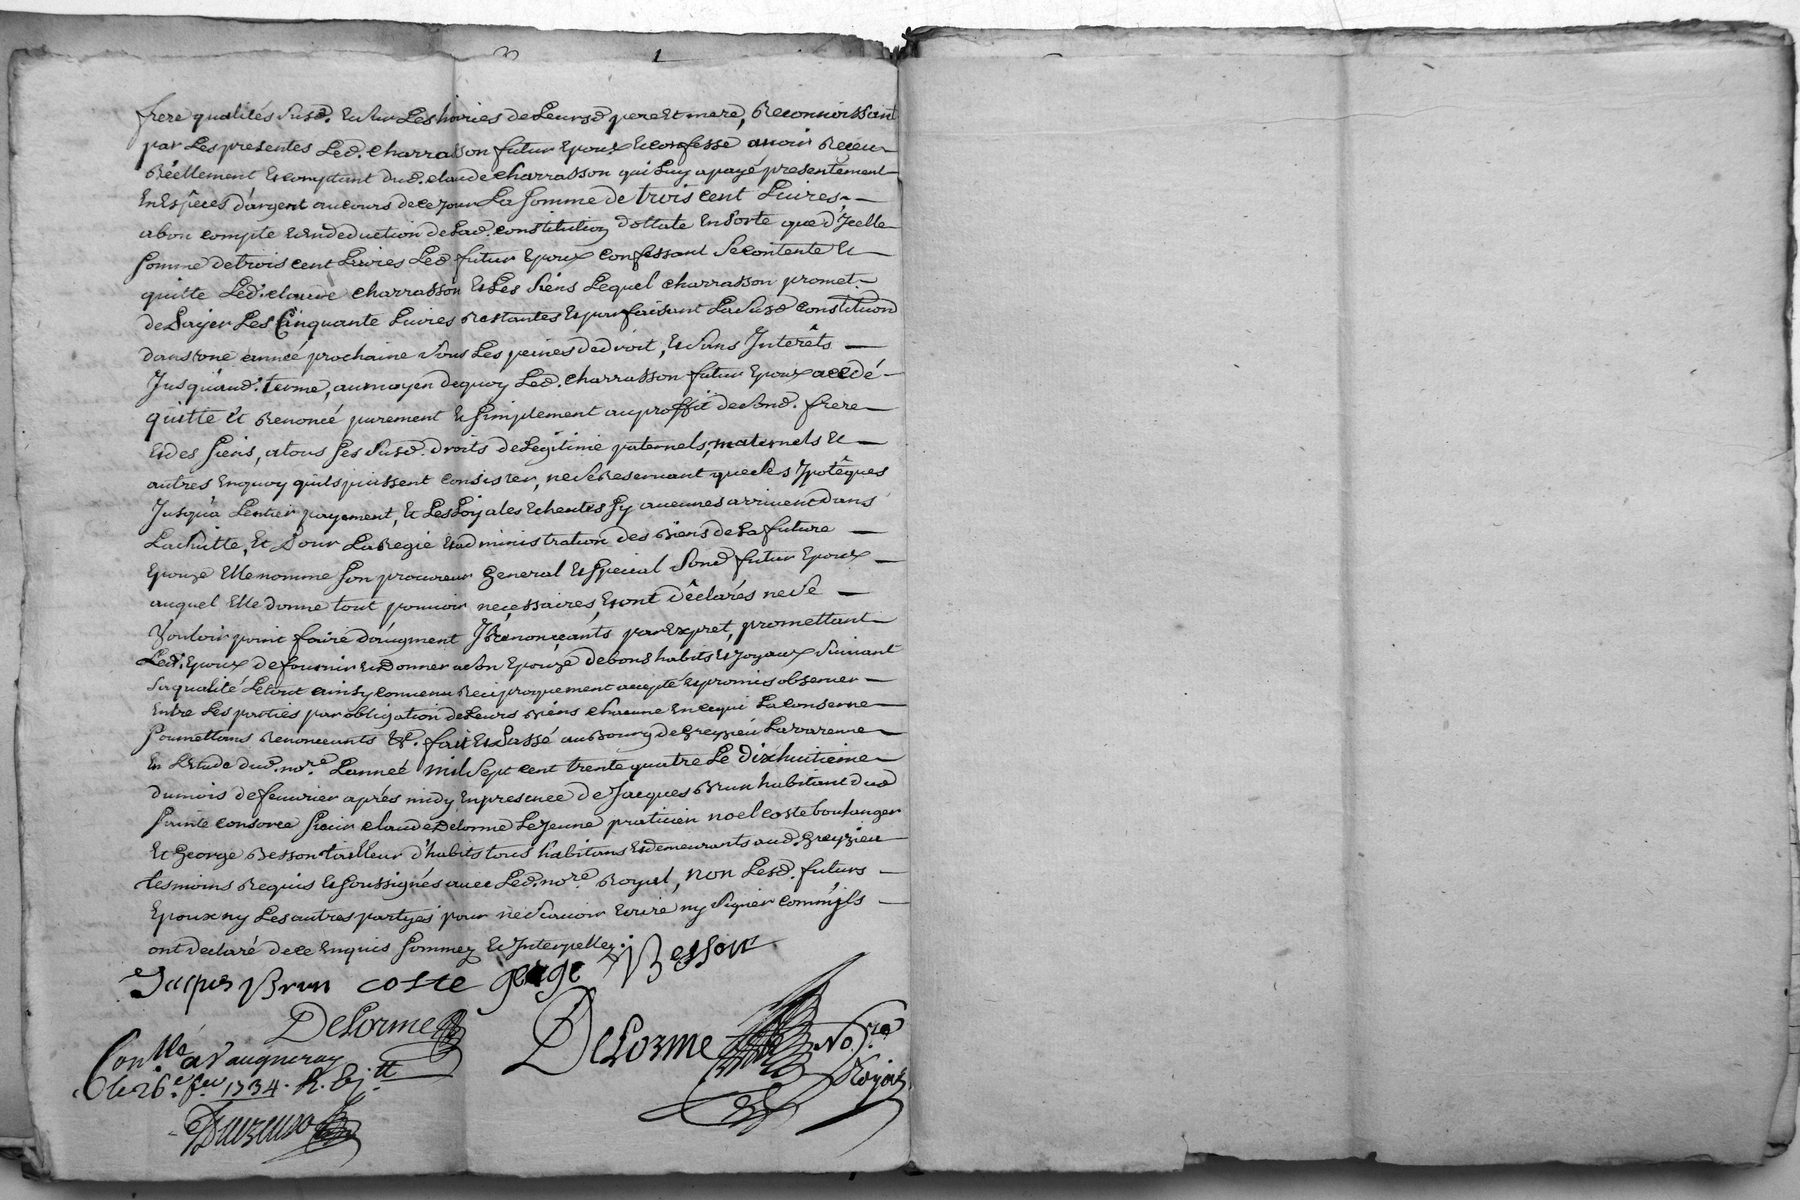 frere qualités susd. Et sur Les hoiries de Leursd pere Et mere, Reconnoissant
par Les presentes Led. charrasson futur Epoux Et confesse avoir Receu
Réellement Et comptant dud. claude charrasson qui Luy a payé presentement
En Espêces d'argent au cours de ce jour La somme de trois cent Livres,
a bon compte Et en deduction de Lad. constitution dottale En sorte que d'Jcelle
somme de trois cent Livres Led futur Epoux confessant se contente Et
quitte Led. claude charrasson Et Les siens Lequel charrasson promet
de Payer Les Cinquante Livres Restantes Et parfaisant La susd constitution
dans une année prochaine sous Les peines de droit, Et sans Jnterêts
Jusqu'aud. terme, au moyen de quoy Led. charrasson futur Epoux a cedé
quitté et Renoncé purement Et simplement au proffit de sond. frere
Et des siens, a tous ses susd. droits de Legitime paternels, maternels Et
autres En quoy qu'ils puissent consister, ne se Reservant que les Jpotêques
Jusqu'a Lentier payement, Et Les Loyales Echeutes sy aucunes arrivent dans
La suitte, Et Pour La Regie Et administration des Biens de La future
Epouze Elle nomme son procureur general Et special sond futur Epoux
auquel Elle donne tout pouvoir necessaires, Et ont déclarés ne se
Vouloir point faire d'augment Jl Renonceants par Expret, promettant
Led. Epoux de fournir Et Donner a son Epouze de bons habits Et Joyaux suivant
sa qualité Le tout ainsy convenu Reciproquement accepté Et promis observer
Entre Les parties par obligation de Leurs Biens chacune En ce qui La conserne
soumettans Renonceants &c. fait Et Passé au Bourg de Greyzieu La varenne
En L'Etude dud. nore L'année mil sept cent trente quatre Le dixhuitieme
du mois de feuvrier aprés midy, En presence de Jacques Brun habitant dud
sainte consorce sieur claude Delorme Le Jeune praticien noel coste boulanger
Et George Besson tailleur d'habits tous habitans Et demeurants aud. Greyzieu
tesmoins Requis Et soussignés avec Led. nore Royal, non Lesd. futurs
Epoux ny Les autres partyes pour ne sçavoir Ecrire ny signer comm'jls
ont declaré de ce Enquis sommez Et Jnterpellez.
Jacques Brun coste george Besson
Delorme
Delorme Nore
Royal
Conllé a Vaugneray
le 26e fer 1734.